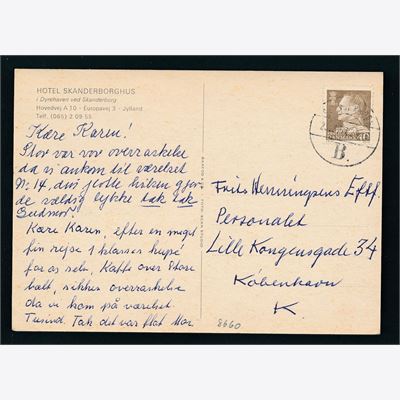 HOTEL SKANDERBORGHUS
i Dyrehaven ved Skanderborg
Hovedvej A 10 - Europavej 3 - Jylland
Telf. (065) 2 09 55
Kære Karen!
Stor var vor overraskelse
da vi ankom til værelset
Nr: 14, den flotte hilsen gjorde
de vældig lykke tak tak
Gudmor
Kære Karen, efter en meget
fin rejse 1 klasses kupé
for os selv, Kaffe over Store
bælt, sikken overraskelse
da vi kom på værelset.
Tusind. Tak det var flot Mor.
Frits Henningsens Eftf
Personalet
Lille Kongensgade 34
København
K
8660
B